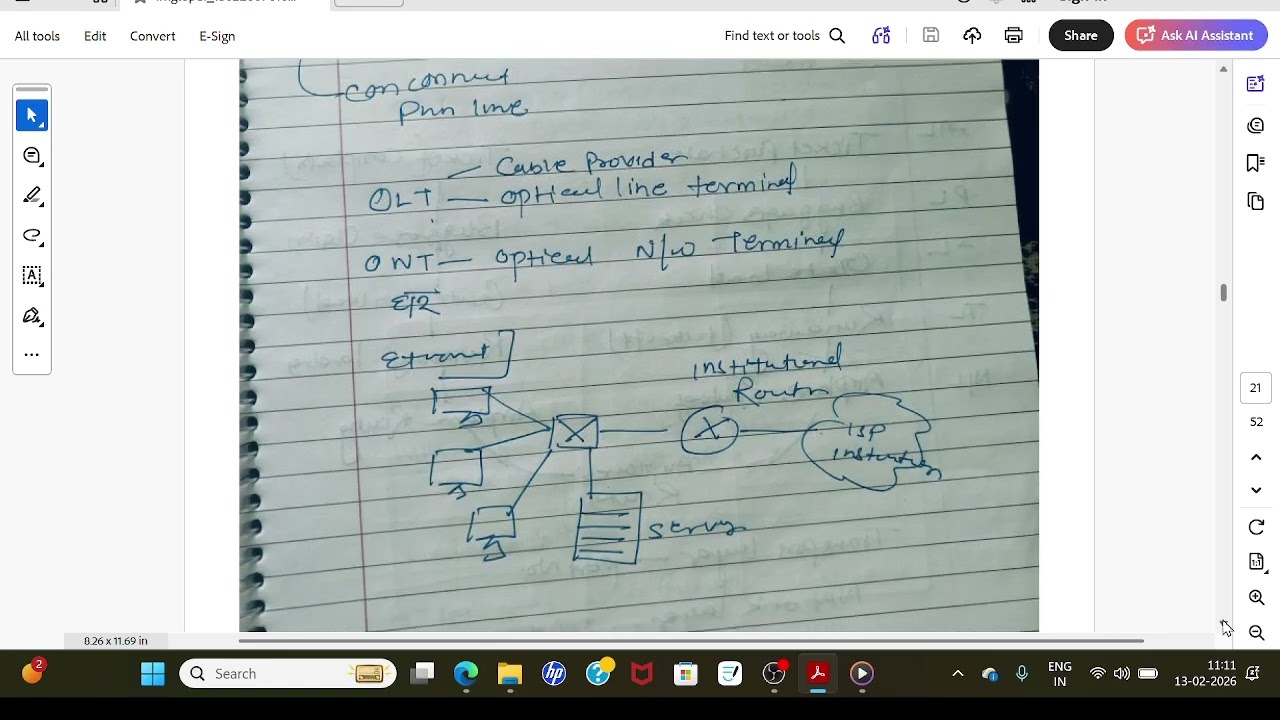 All tools Edit Convert E-Sign Find text or tools Share Ask AI Assistant
conconnect
Pnn line
Cable Provider
OLT — optical line terminal
ONT — optical N/W Terminal
Institutional
Router
ISP
21
52
8.26 x 11.69 in
2 Search ENG 11:11
IN 13-02-2026